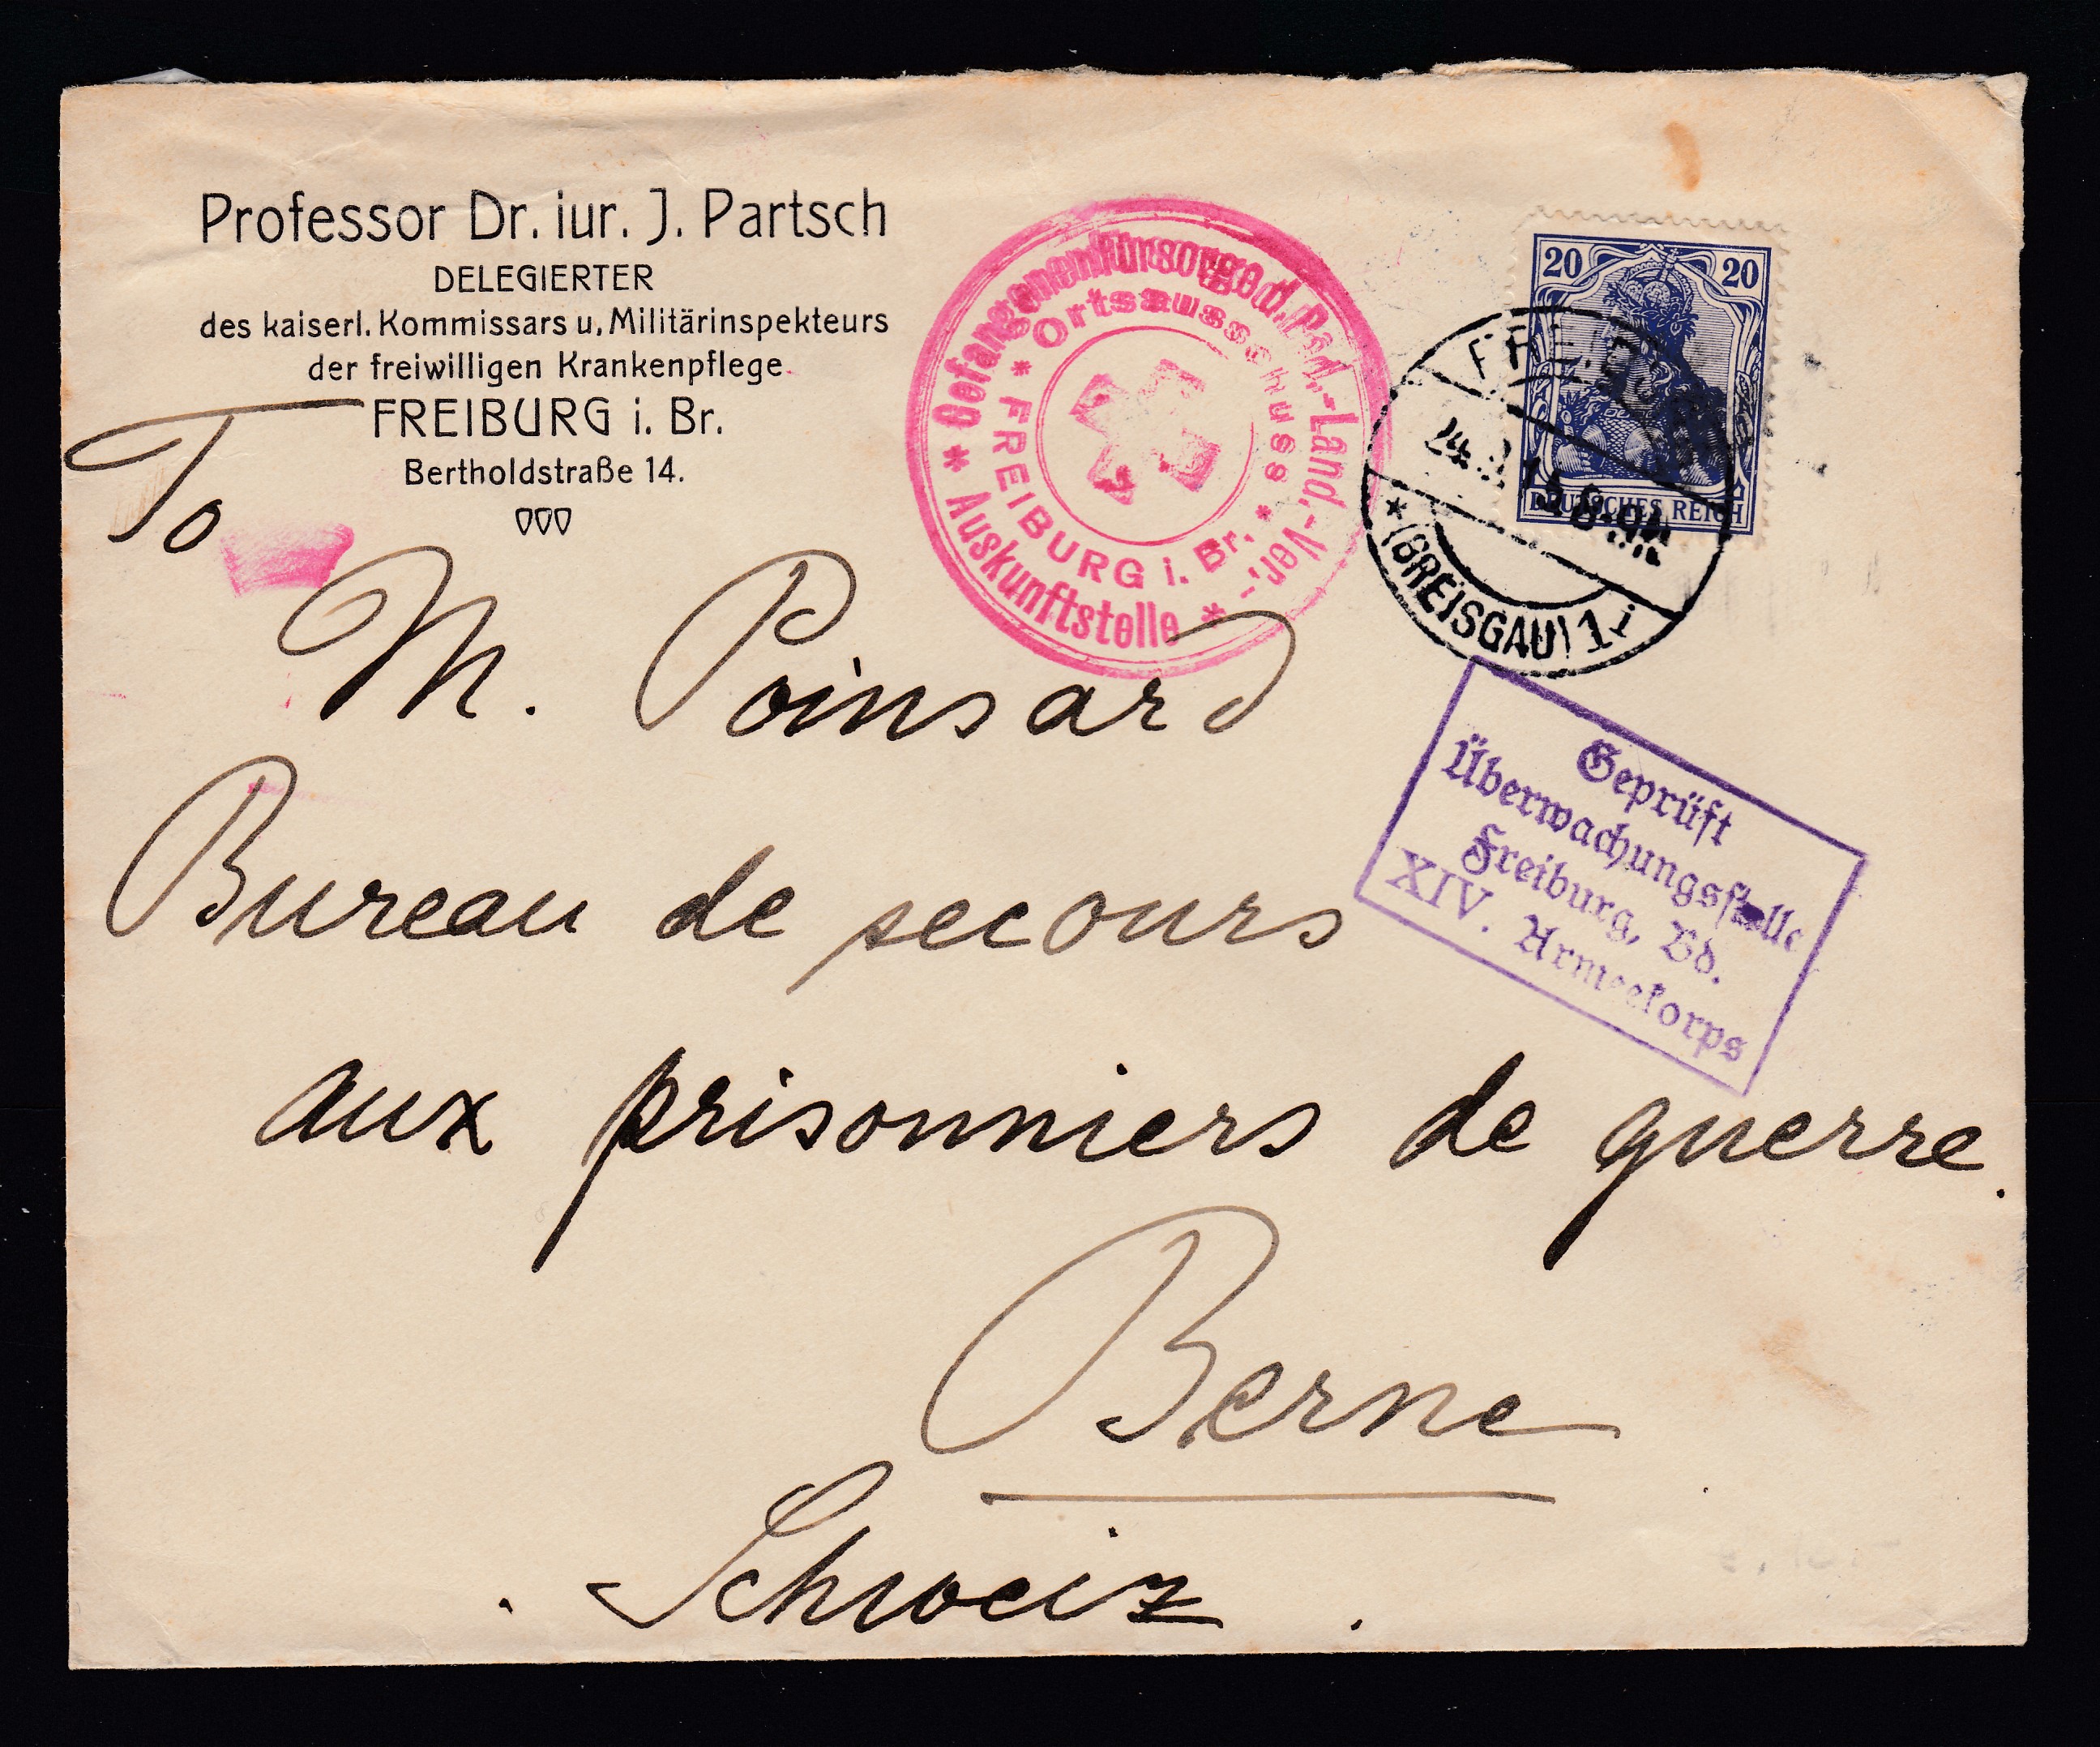 Professor Dr. iur. J. Partsch
DELEGIERTER
des kaiserl. Kommissars u. Militärinspekteurs
der freiwilligen Krankenpflege
FREIBURG i. Br.
Bertholdstraße 14.
* Gefangenenfürsorge d. Bad.-Land.-Ver.- *
Auskunftstelle
* Ortsausschuss *
FREIBURG i. Br.
20 20
DEUTSCHES REICH
FREIBURG
24. 15 8-9N
* (BREISGAU) 1i
Geprüft
Überwachungsstelle
Freiburg, Bd.
XIV. Armeekorps
To
M. Poinsard
Bureau de secours
aux prisonniers de guerre.
Berne
Schweiz